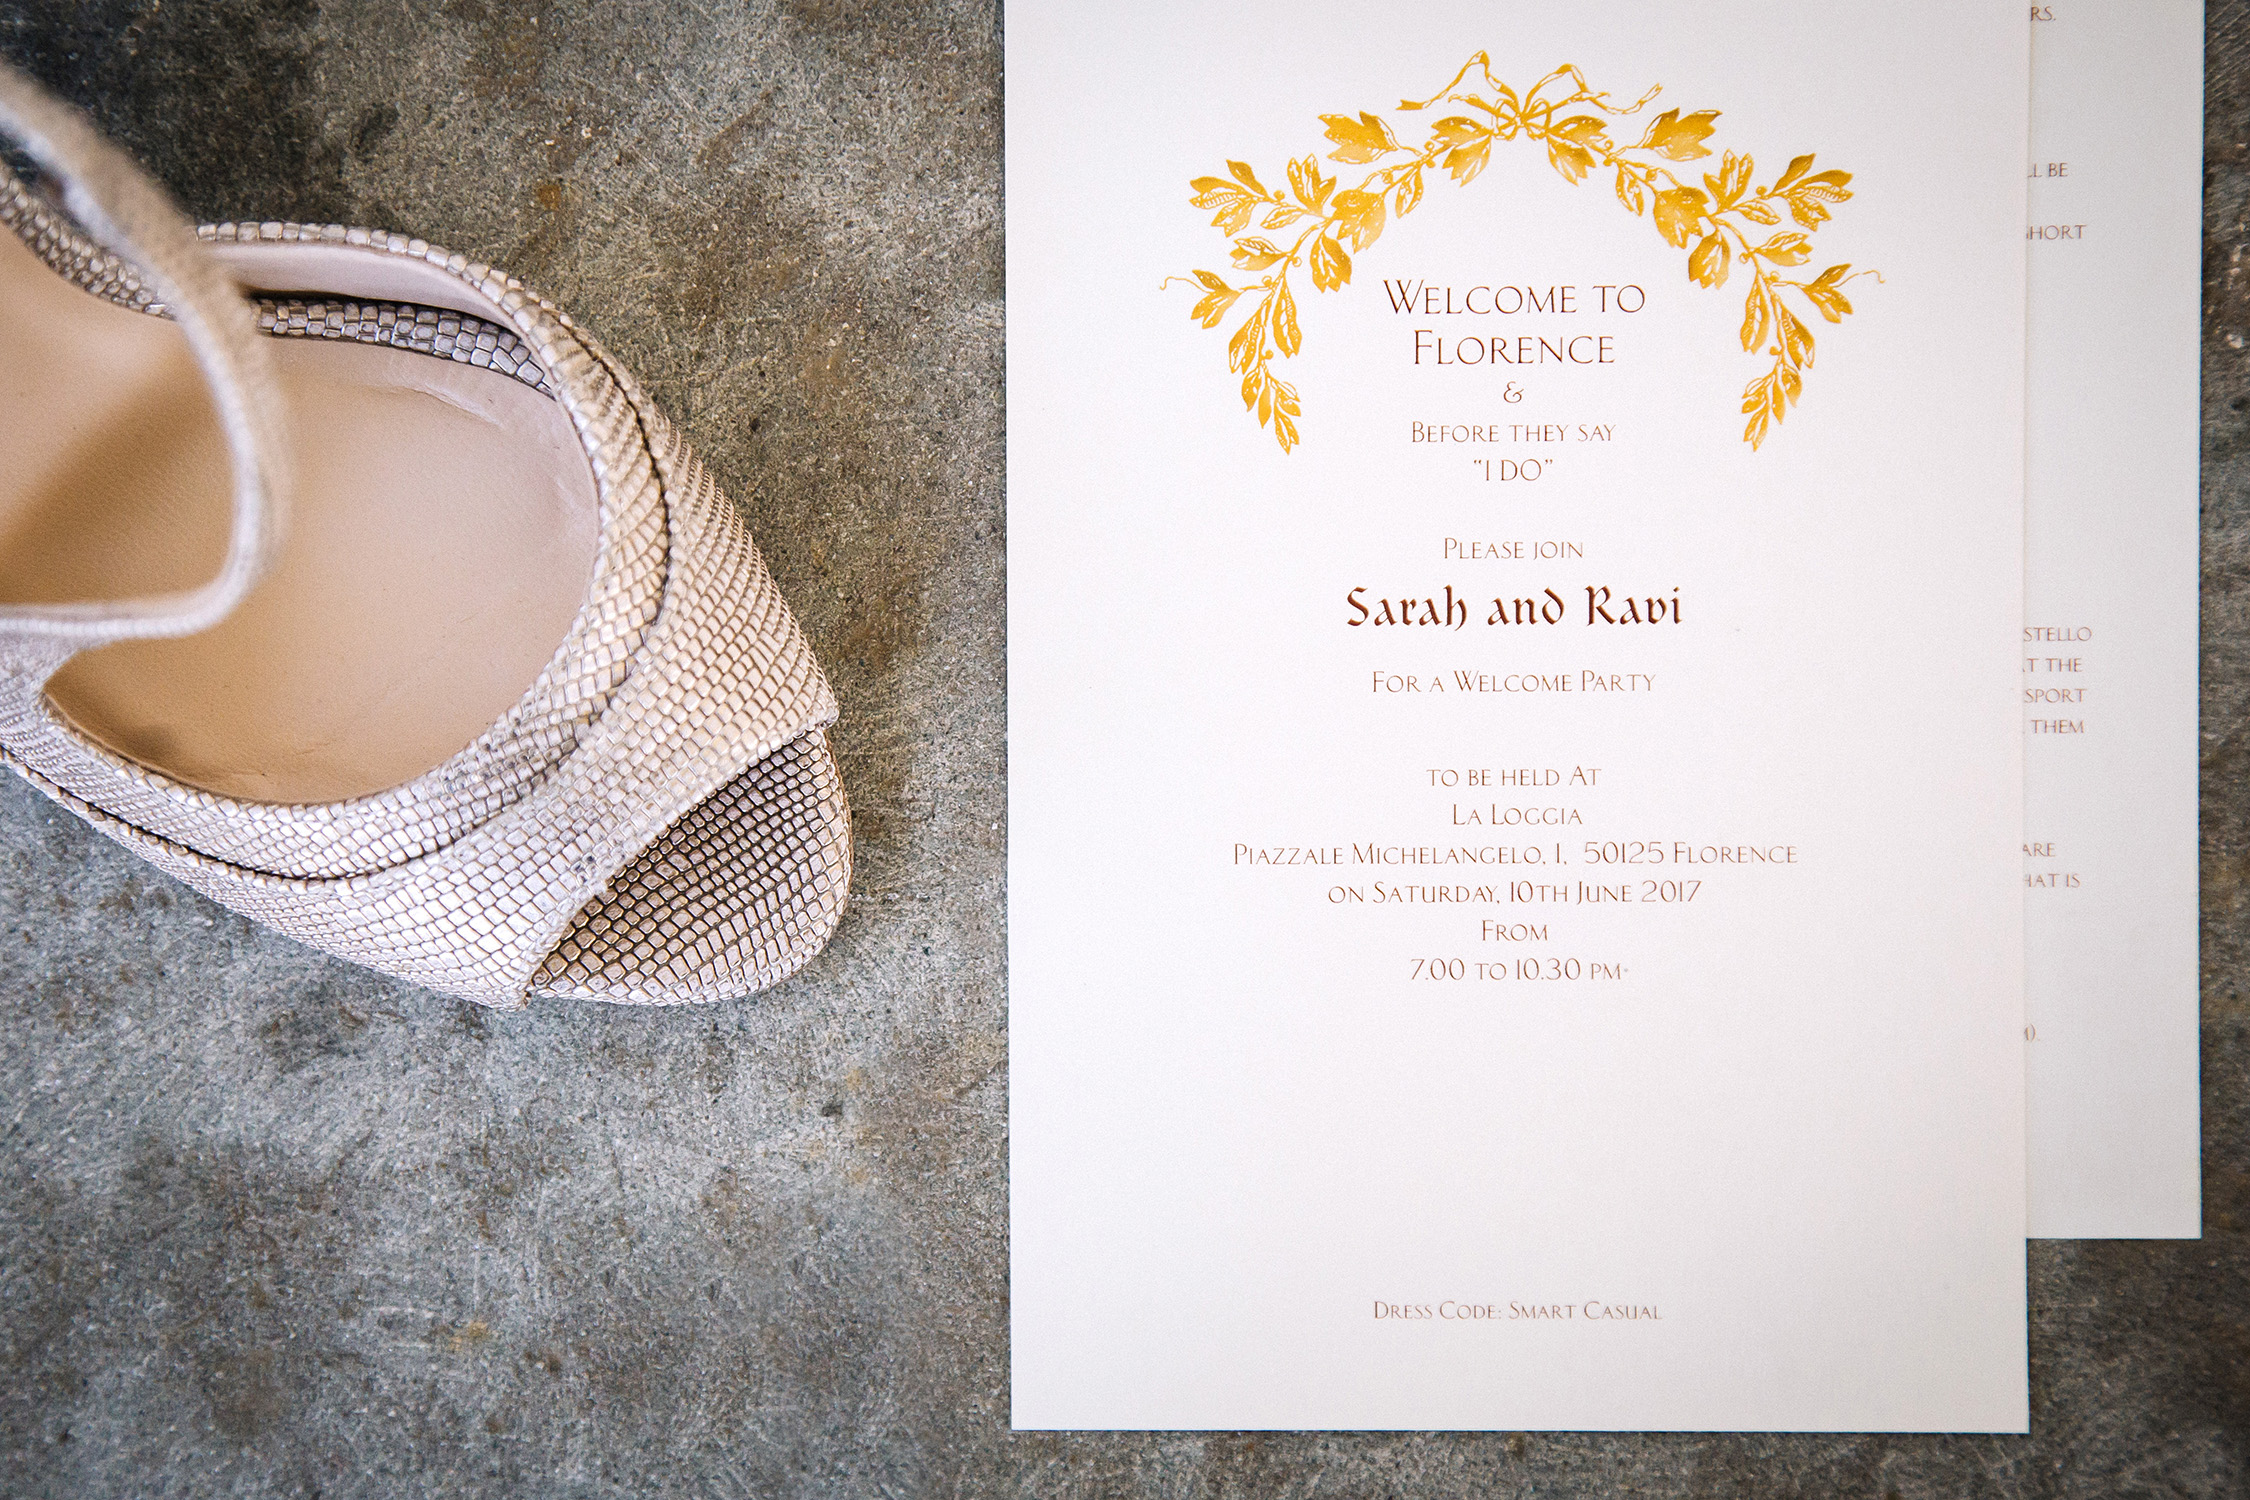 Welcome to
Florence
&
Before they say
“I do”
Please join
Sarah and Ravi
For a Welcome Party
to be held At
La Loggia
Piazzale Michelangelo, 1, 50125 Florence
on Saturday, 10th June 2017
From
7.00 to 10.30 pm
Dress Code: Smart Casual
BE
SHORT
THE
THEM
ARE
IS